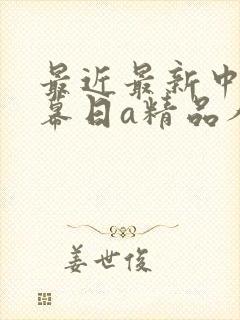 最近最新中
幕日a精品人
姜世俊